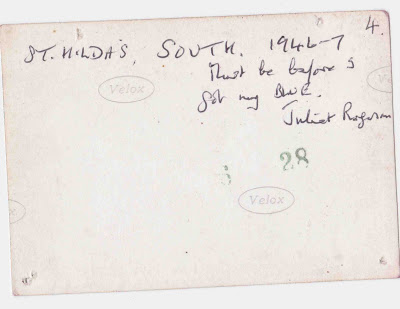 4.
ST. HILDA'S, SOUTH. 1946-7
Must be before I
got my BLUE.
Juliet
Velox
Velox
28
Velox